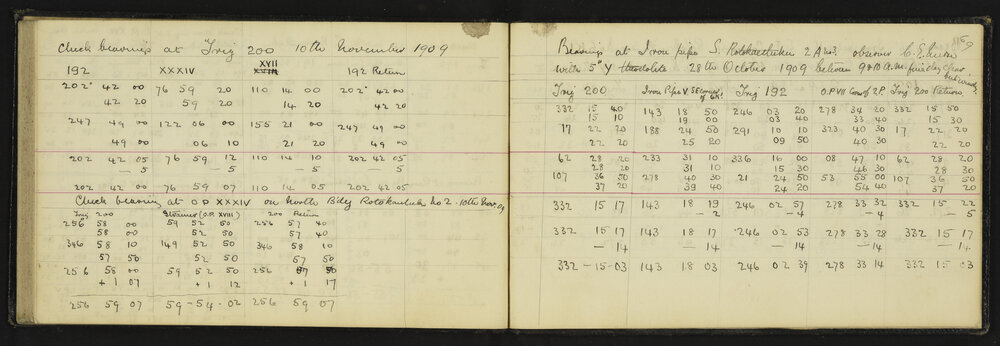 Check bearings at Trig 200 10th November 1909
XVII
192 XXXIV XVIII 192 Return
202° 42 00 76 59 20 110 14 00 202° 42 00
42 20 59 20 14 20 42 20
247 49 00 122 06 00 155 21 00 247 49 00
49 00 06 10 21 20 49 00
202 42 05 76 59 12 110 14 10 202 42 05
— 5 — 5 — 5 — 5
202 42 00 76 59 07 110 14 05 202 42 05
Check bearing at O.P XXXIV on North Bdy Rotokautuku No 2 - 10th Nov. 09
Trig 200 (O.P. XVIII) 200 Return
256 58 00 59 52 50 256 57 40
58 00 52 50 57 40
346 58 10 149 52 50 346 58 10
57 50 52 50 57 50
256 58 00 59 52 50 256 57 50
+ 1 07 + 1 12 + 1 17
256 59 07 59 - 54 - 02 256 59 07
69
Bearings at Iron pipe S. Rotokautuku 2A observer C.E.
with 5" Y theodolite 28th October 1909 between 9 & 10 A.M. fine day clear
Trig 200 Iron Pipe V Trig 192 O.P VII 2P. Trig 200 Return
332 15 40 143 18 50 246 03 20 278 34 20 332 15 50
15 10 19 00 03 40 33 40 15 30
17 22 20 188 24 50 291 10 10 323 40 30 17 22 20
22 20 25 20 09 50 40 30 22 20
62 28 20 233 31 10 336 16 00 08 47 10 62 28 20
28 20 31 10 15 30 46 30 28 30
107 36 50 278 40 30 21 24 50 53 55 00 107 36 50
37 20 39 40 24 20 54 40 37 20
332 15 17 143 18 19 246 02 57 278 33 32 332 15 22
— 2 — 4 — 4 — 5
332 15 17 143 18 17 246 02 53 278 33 28 332 15 17
— 14 — 14 — 14 — 14 — 14
332 - 15 - 03 143 18 03 246 02 39 278 33 14 332 15 03